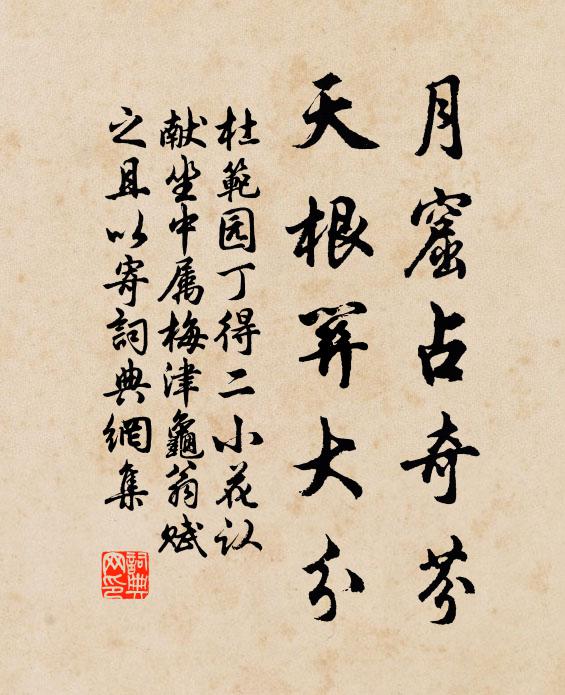 月窟占奇芬
天根開大分
杜範园丁得二小花以
献坐中属梅津龜翁赋
之且以寄詞典網集
詞典
网印